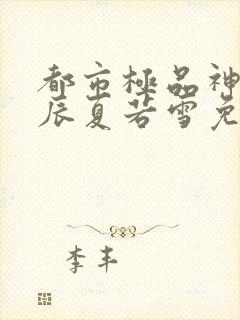 都市極品神
辰夏若雪免
李丰